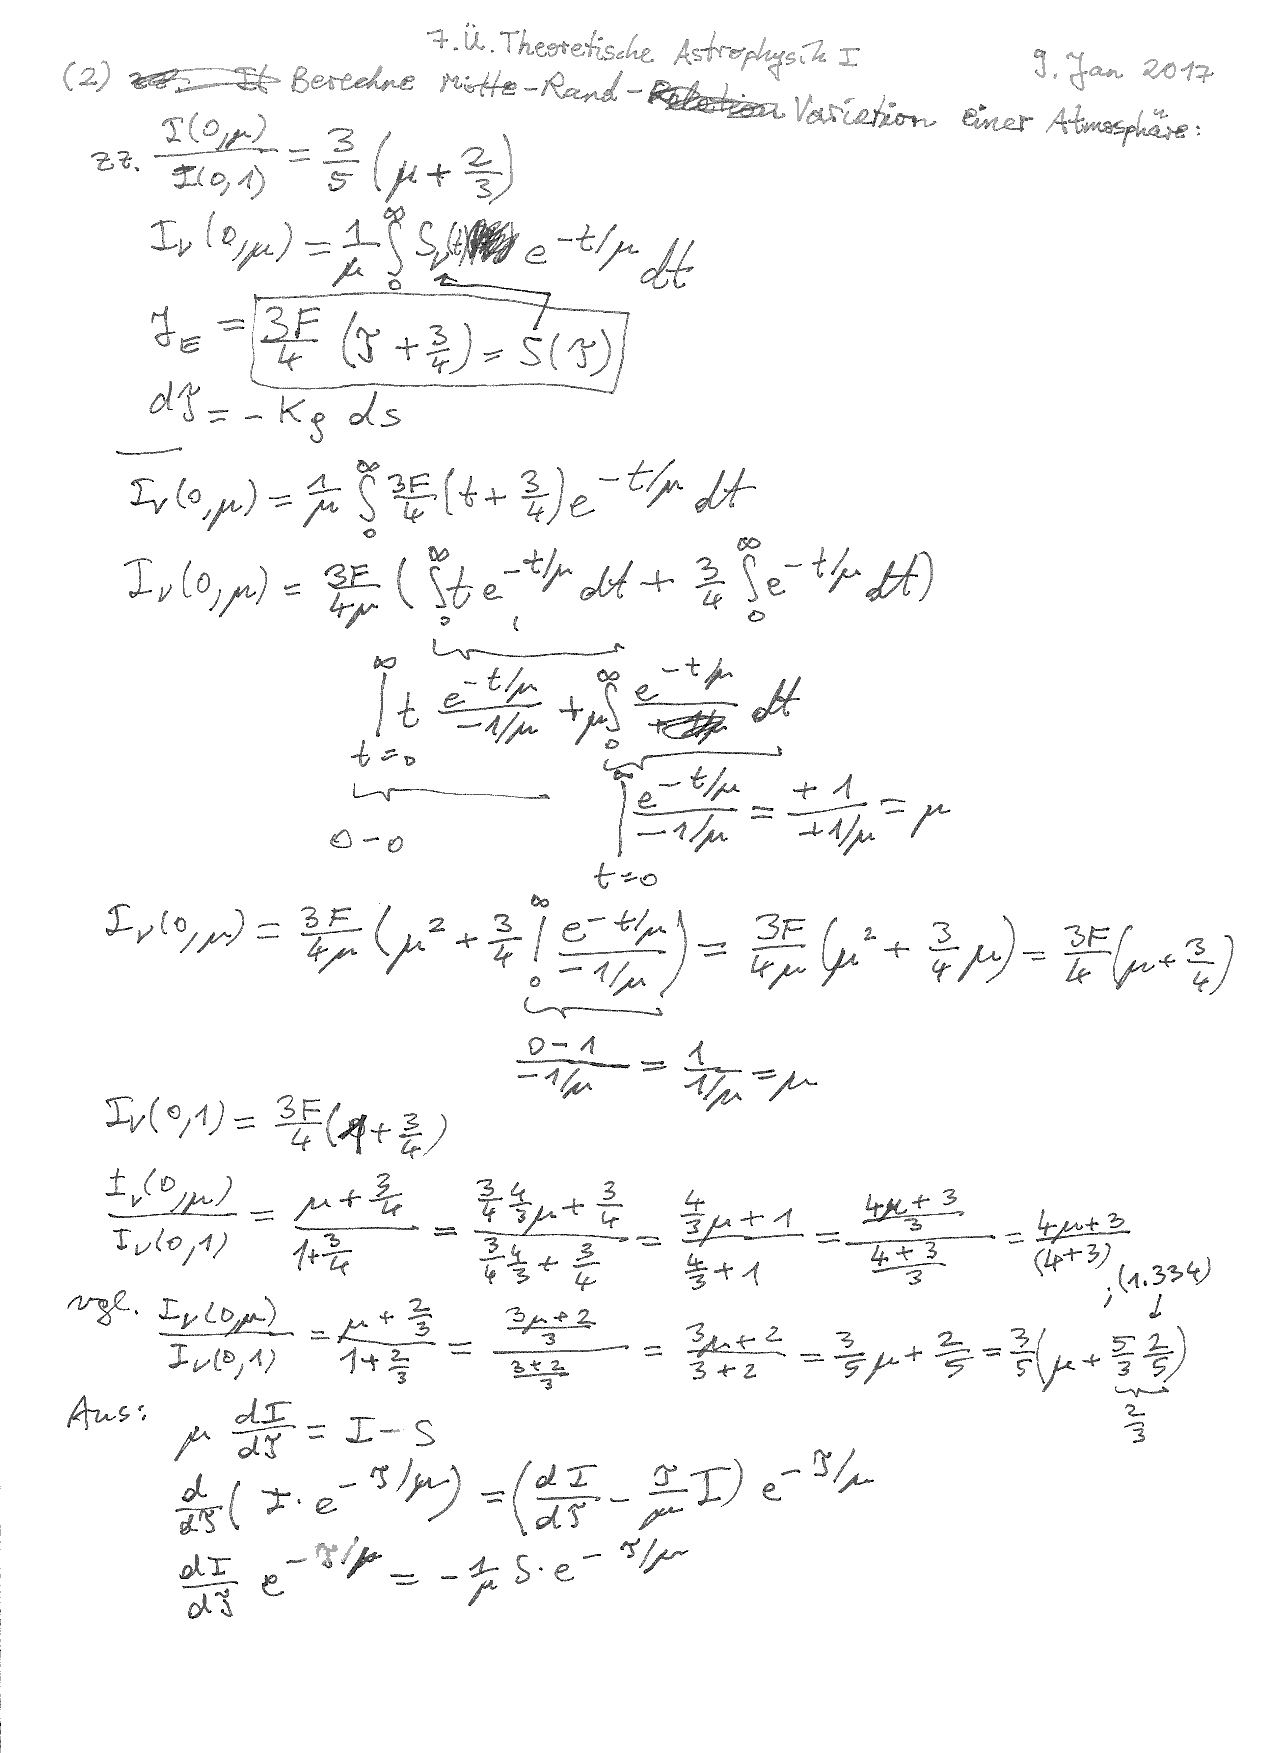 7. Ü. Theoretische Astrophysik I
9. Jan 2017
(2) Berechne Mitte-Rand-Variation einer Atmosphäre:
zz. I(0,μ)/I(0,1) = 3/5 (μ + 2/3)
I_ν(0,μ) = 1/μ ∫_0^∞ S_ν(t) e^{-t/μ} dt
J_E = 3F/4 (τ + 3/4) = S(τ)
dτ = -κρ ds
I_ν(0,μ) = 1/μ ∫_0^∞ 3F/4 (t + 3/4) e^{-t/μ} dt
I_ν(0,μ) = 3F/4μ ( ∫_0^∞ t e^{-t/μ} dt + 3/4 ∫_0^∞ e^{-t/μ} dt )
|_{t=0}^∞ t e^{-t/μ}/(-1/μ) + μ ∫_0^∞ e^{-t/μ} dt
0-0
|_{t=0}^∞ e^{-t/μ}/(-1/μ) = +1/(+1/μ) = μ
I_ν(0,μ) = 3F/4μ ( μ² + 3/4 |_0^∞ e^{-t/μ}/(-1/μ) ) = 3F/4μ ( μ² + 3/4 μ ) = 3F/4 ( μ + 3/4 )
(0-1)/(-1/μ) = 1/(1/μ) = μ
I_ν(0,1) = 3F/4 (1 + 3/4)
I_ν(0,μ)/I_ν(0,1) = (μ + 3/4)/(1 + 3/4) = (3/4 4/3 μ + 3/4)/(3/4 4/3 + 3/4) = (4/3 μ + 1)/(4/3 + 1) = ((4μ+3)/3)/((4+3)/3) = (4μ+3)/(4+3)
; (1.334)
↓
vgl. I_ν(0,μ)/I_ν(0,1) = (μ + 2/3)/(1 + 2/3) = ((3μ+2)/3)/((3+2)/3) = (3μ+2)/(3+2) = 3/5 μ + 2/5 = 3/5 (μ + 5/3 2/5)
2/3
Aus:
μ dI/dτ = I - S
d/dτ ( I · e^{-τ/μ} ) = ( dI/dτ - τ/μ I ) e^{-τ/μ}
dI/dτ e^{-τ/μ} = -1/μ S · e^{-τ/μ}